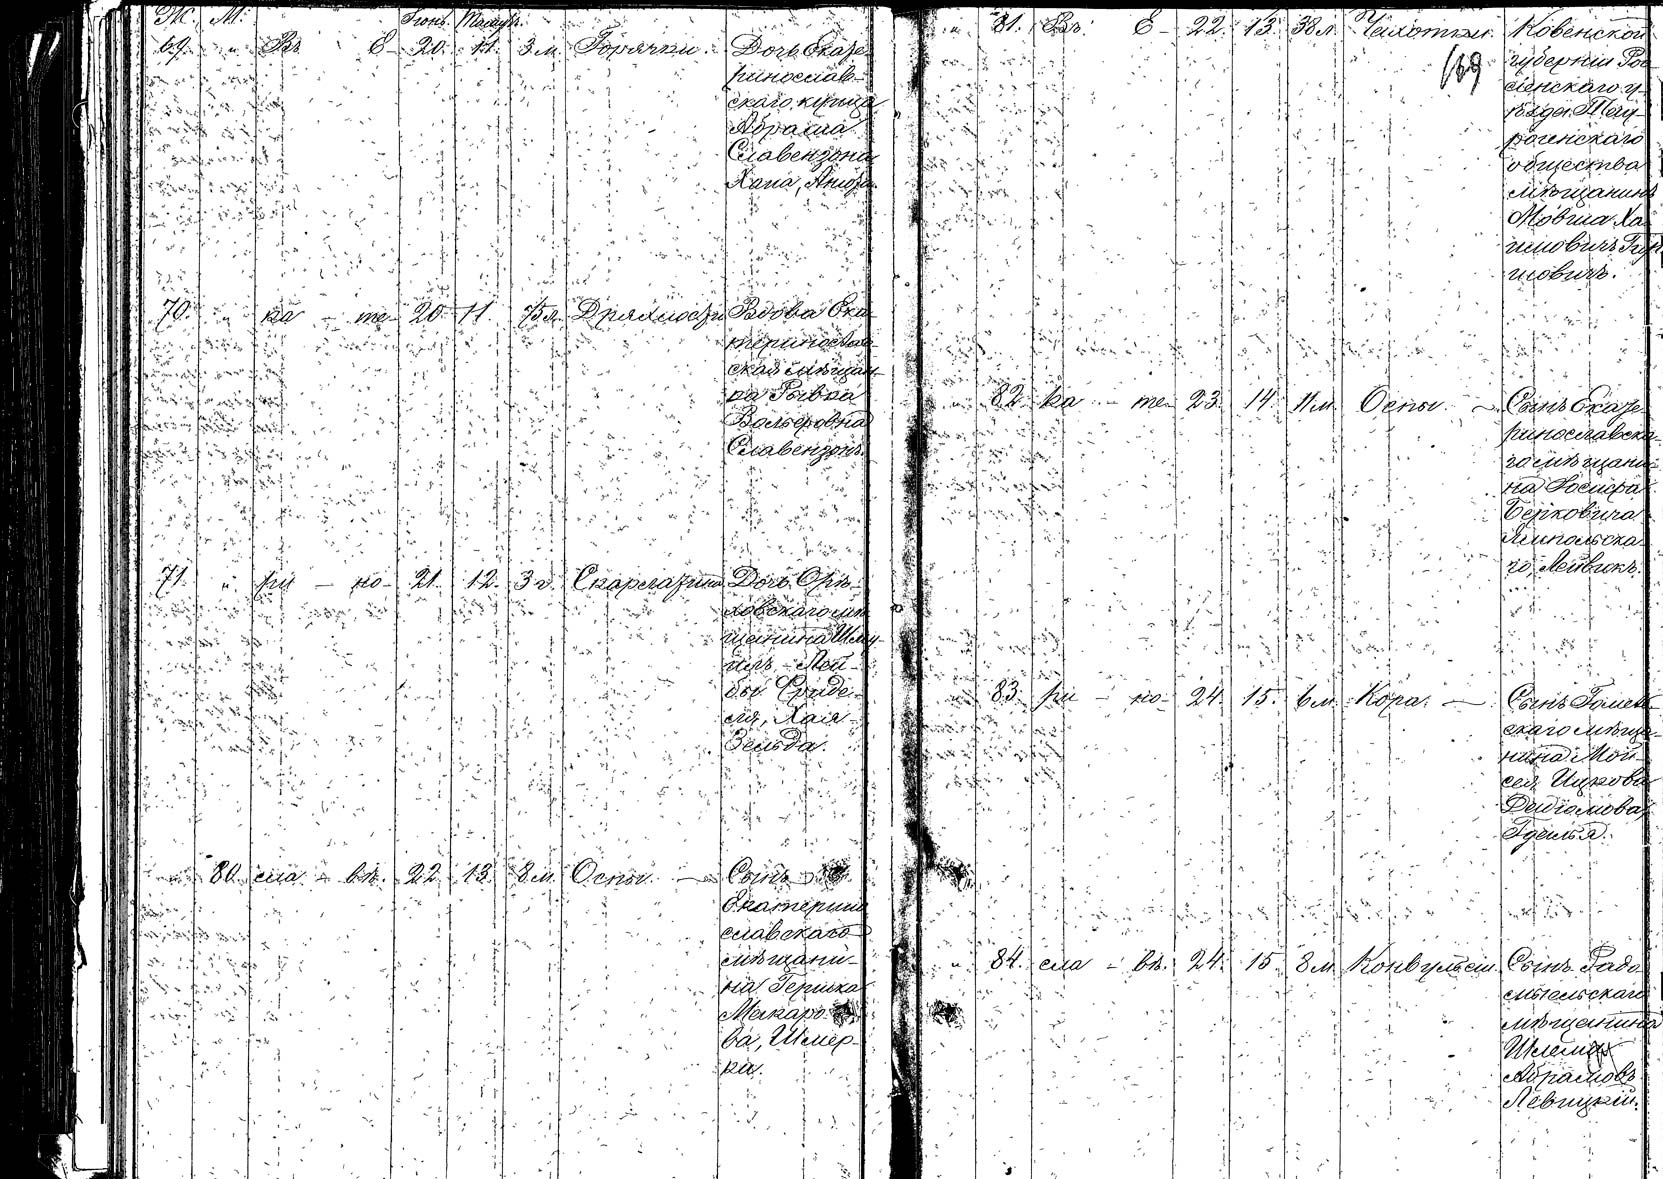 Ж. М. Іюнь
69. " Въ Е- 20. 11. 3 м. Горячки Дочь Екате-
ринослав-
скаго купца
Абрама
Славензона
Хана,
70. " ка - те- 20 11. 75 л. Дряхлости Вдова Ека-
теринослав-
ская мѣщан-
ка Рывка
Вольфовна
Славензонъ
71. " ри - но- 21. 12. 3 г. Скарлатина Дочь Орѣ-
ховскаго мѣ-
щанина Шму-
илъ - Лей-
бы
Хая
Зельда.
" 80. сла - вѣ. 22. 13. 8 м. Оспы - Сынъ
Екатерино
славскаго
мѣщани-
на Гершка
Макаро-
ва, Шмер-
ка.
" 81. Въ Е- 22. 13. 38 л. Чахотки Ковенской
169
губерніи Рос-
сіенскаго у-
ѣзда Тау-
рогенскаго
общества
мѣщанинъ
Мовша Ха-
имовичъ Гур-
шовичъ.
" 82. ка - те- 23. 14. 11 м. Оспы - Сынъ Екате-
ринославска-
го мѣщани-
на Іосифа
Берковича
Ямпольска-
го, Лейвикъ.
" 83. ри - но- 24. 15. 6 м. Кора. - Сынъ Гомель-
скаго мѣща-
нина Мой-
сея Ицкова
" 84. сла - вѣ. 24. 15. 8 м. Конвульсіи Сынъ Радо-
мысльскаго
мѣщанина
Шлема
Абрамовъ
Левицкій.